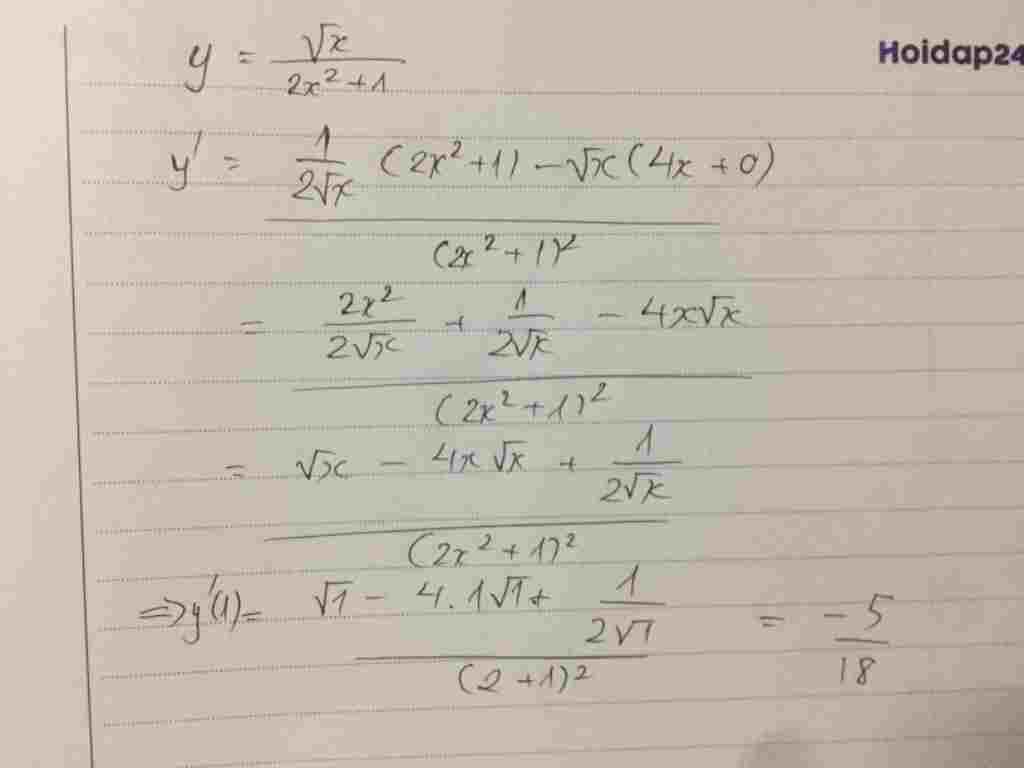 Hoidap24
y = √x / (2x² + 1)
y' = (1/(2√x) (2x² + 1) - √x (4x + 0)) / (2x² + 1)²
= (2x²/(2√x) + 1/(2√x) - 4x√x) / (2x² + 1)²
= (√x - 4x√x + 1/(2√x)) / (2x² + 1)²
⇒ y'(1) = (√1 - 4.1√1 + 1/(2√1)) / (2 + 1)² = -5/18